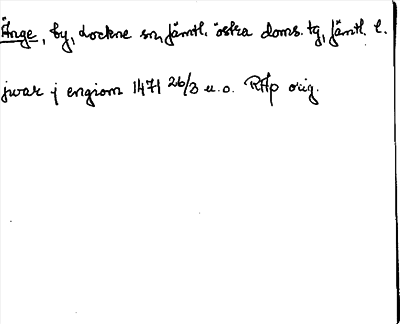 Änge, by, Lockne sn, Jämtl. östra doms. tg, Jämtl. l.
jwar j engiom 1471 26/3 u.o. RAp orig.